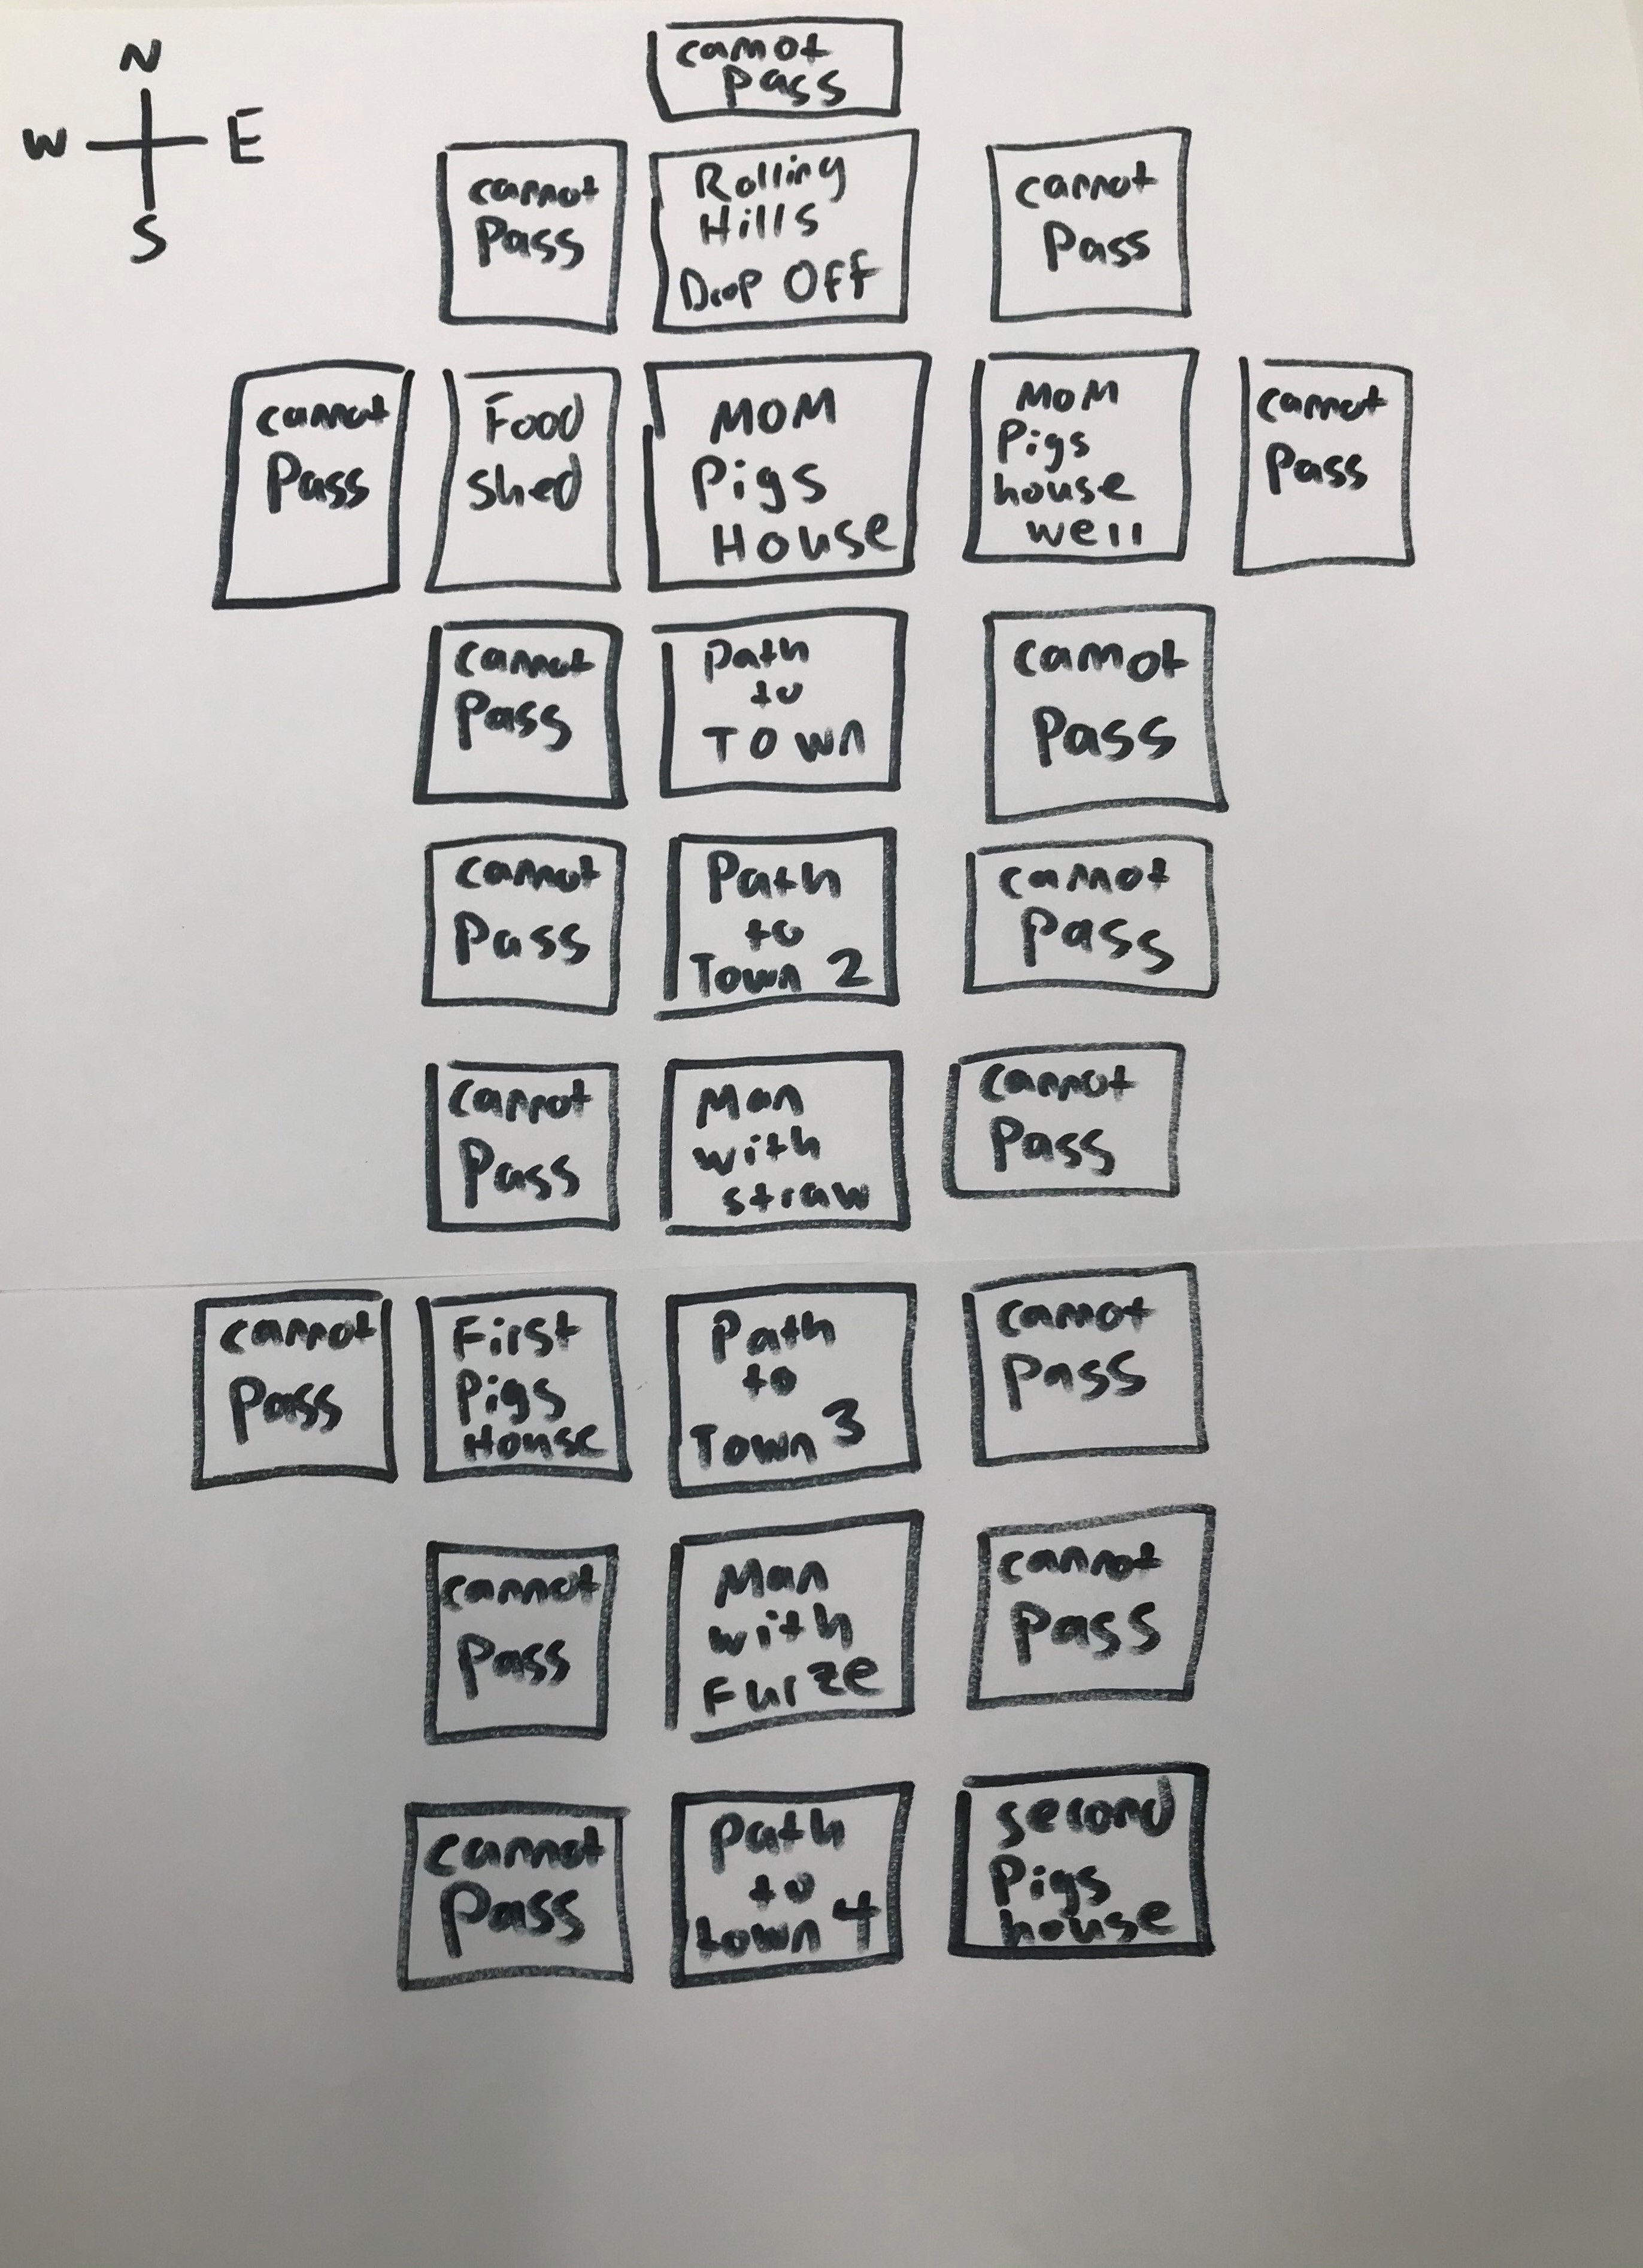 N
W E
S
cannot
Pass
cannot
Pass
Rolling
Hills
Drop Off
cannot
Pass
cannot
Pass
Food
shed
MOM
Pigs
House
MOM
Pigs
house
well
cannot
Pass
cannot
Pass
Path
to
Town
cannot
Pass
cannot
Pass
Path
to
Town 2
cannot
Pass
cannot
Pass
Man
with
straw
cannot
Pass
cannot
Pass
First
Pigs
House
Path
to
Town 3
cannot
Pass
cannot
Pass
Man
with
Furze
cannot
Pass
cannot
Pass
Path
to
town 4
second
Pigs
house